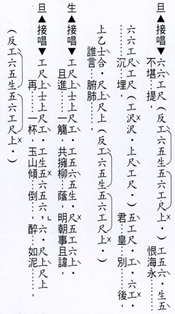 旦▲接唱▼六六工尺（反工六五生五六工尺上）工五六．生五
不堪…提…… 恨海永…
……六六工尺工（工沢沢．上尺工尺．）五工尺．工．六工．
……沉…埋， 君…皇…別…後，
上乙士合．尺上尺上（反工六五生五六工尺上．）
誰言…腑肺……
生▲接唱▼工尺上士上尺工尺上尺工．尺五工六上
且進…一觴，共擁柳…蔭，明朝事且諱，
旦▲接唱▼工尺上尺上尺工生五六五六．六．尺上尺上
再…上…一杯…玉山傾…倒…，醉…如泥……
（反工六五生五六工尺上．）